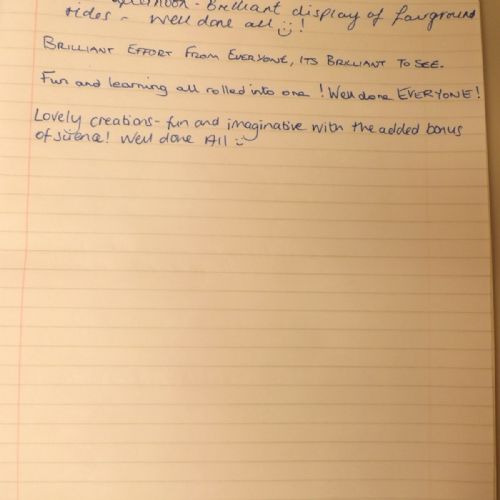 afternoon - Brilliant display of fairground
rides - Well done all !
BRILLIANT EFFORT FROM EVERYONE, ITS BRILLIANT TO SEE.
Fun and learning all rolled into one! Well done EVERYONE!
Lovely creations - fun and imaginative with the added bonus
of science! Well done All